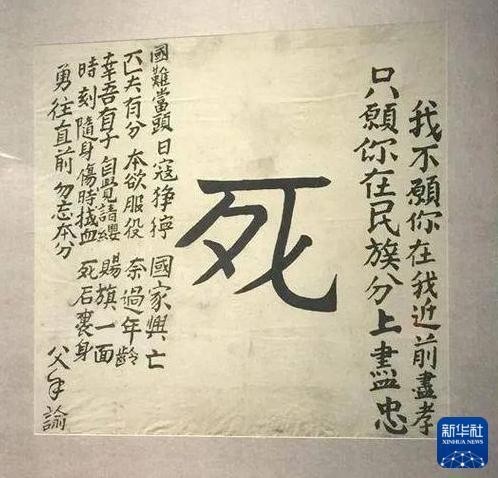 我不願你在我近前盡孝
只願你在民族分上盡忠
死
國難當頭 日寇猙獰 國家興亡
匹夫有分 本欲服役 奈過年齡
幸吾有子 自覺請纓 賜旗一面
時刻隨身 傷時拭血 死后裹身
勇往直前 勿忘本分
父手諭
新华社
XINHUA NEWS